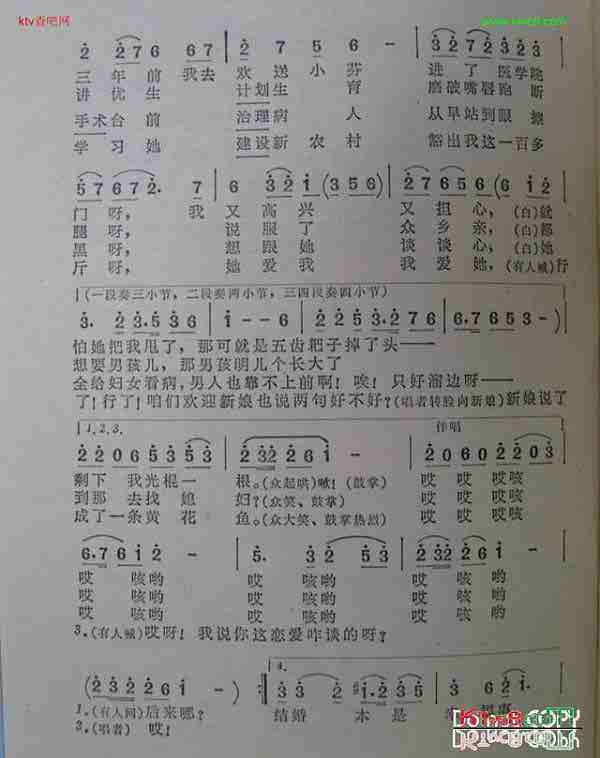 ktv查吧网
2 2 7 6 6 7 | 2 7 5 6 - | 3 2 3 2 7 2 3 2 3
三年前我去欢送小芬进了医学院
讲优生计划生育磨破嘴唇跑断
手术台前治理病人从早站到眼擦
学习她建设新农村豁出我这一百多
5 7 6 7 2. 7 | 6 3 2 1 (3 5 6) | 2 7 6 5 6 (6 1 2
门呀，我又高兴又担心，(白)就
腿呀，说服了众乡亲，(白)都
黑呀，想跟她谈谈心，(白)她
斤呀，她爱我我爱她，(有人喊)行
(一段奏三小节，二段奏两小节，三四段奏四小节)
3. 2 3.5 3 6 | 1 - - 6 | 1 2 3.5 2 7 6 | 6.7 6 5 3 -)
怕她把我甩了，那可就是五齿耙子掉了头——
想要男孩儿，那男孩明儿个长大了
全给妇女看病，男人也靠不上前啊！唉！只好溜边呀——
了！行了！咱们欢迎新娘也说两句好不好？(唱者转脸向新娘)新娘说了
1.2.3.
伴唱
2 2 0 6 5 3 5 | 2 3 2 2 6 1 - | 2 0 6 0 2 2 0
剩下我光棍一根。(众起哄)嗽！(鼓掌)哎哎哎咳
到那去找媳妇？(众笑、鼓掌)哎哎哎咳
成了一条黄花鱼。(众大笑、鼓掌热烈)哎哎哎咳
6.7 6 1 2 - | 5. 3 2 5 3 | 2 3 2 2 6 1 -
哎咳哟哎咳哟哎咳哟
哎咳哟哎咳哟哎咳哟
哎咳哟哎咳哟哎咳哟
3.(有人喊)哎呀！我说你这恋爱咋谈的呀？
(2 3 2 2 2 6 1 -) :| 4. 3 3 2 #1.2 3 5
1.(有人问)后来哪？结婚本是
3.(唱者)哎！